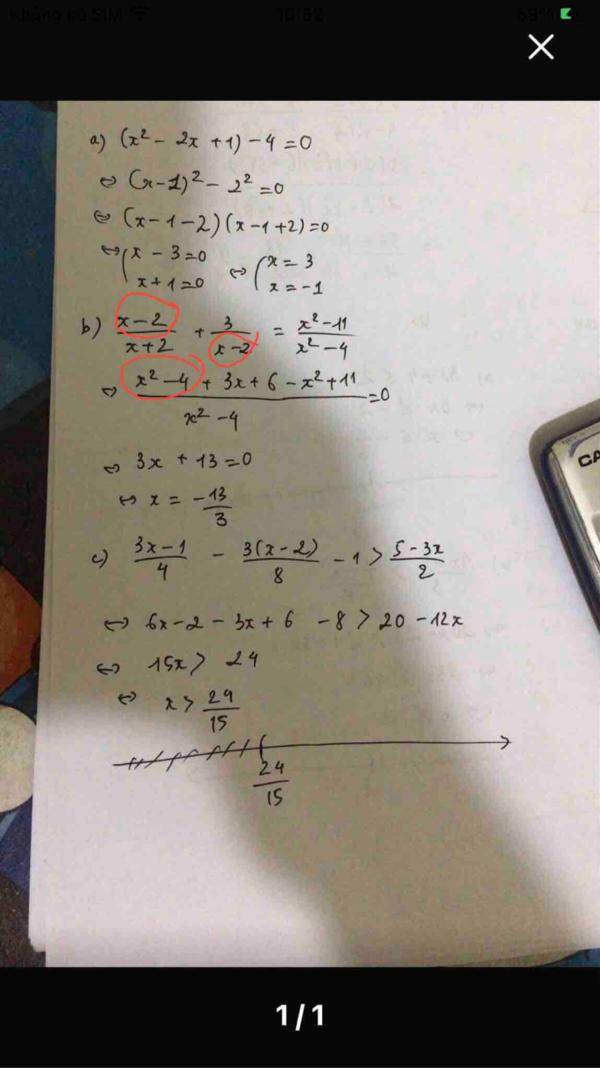 Không có SIM
10:52
69%
a) (x² - 2x + 1) - 4 = 0
⇔ (x-1)² - 2² = 0
⇔ (x-1-2)(x-1+2) = 0
⇔ { x - 3 = 0 ⇔ { x = 3
x + 1 = 0 x = -1
b) x-2/x+2 + 3/x-2 = x²-11/x²-4
⇔ x²-4 + 3x + 6 - x² + 11/x²-4 = 0
⇔ 3x + 13 = 0
⇔ x = -13/3
c) 3x-1/4 - 3(x-2)/8 - 1 > 5-3x/2
⇔ 6x - 2 - 3x + 6 - 8 > 20 - 12x
⇔ 15x > 24
⇔ x > 24/15
24/15
CA
1/1